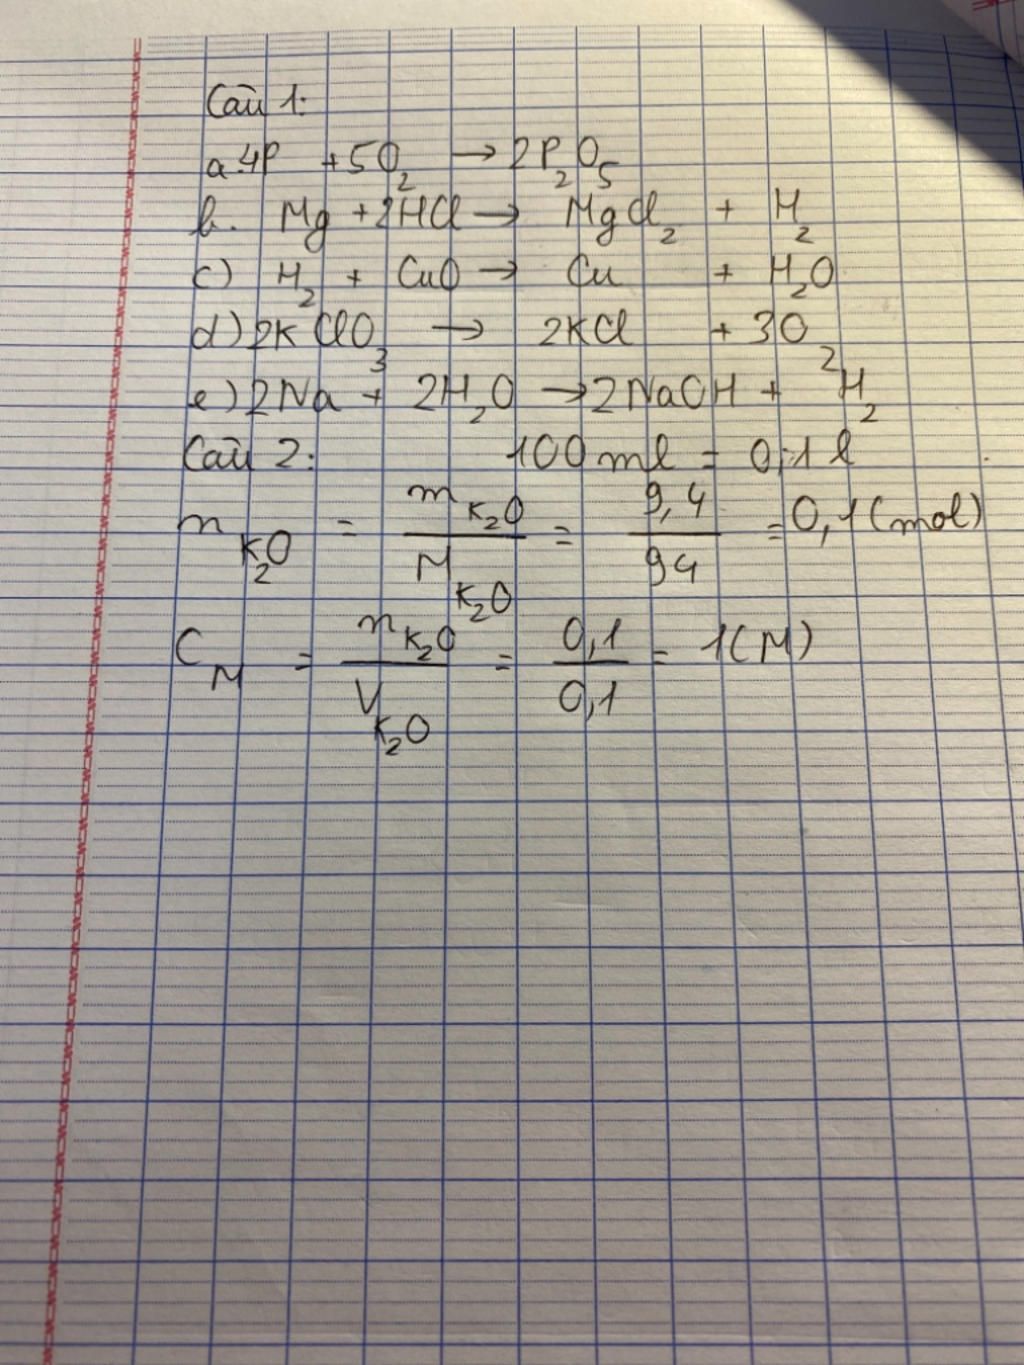 Câu 1:
a. 4P + 5O₂ → 2P₂O₅
b. Mg + 2HCl → MgCl₂ + H₂
c) H₂ + CuO → Cu + H₂O
d) 2KClO₃ → 2KCl + 3O₂
e) 2Na + 2H₂O → 2NaOH + H₂
Câu 2: 100ml = 0,1l
n K₂O = m K₂O / M K₂O = 9,4 / 94 = 0,1 (mol)
C M = n K₂O / V K₂O = 0,1 / 0,1 = 1 (M)